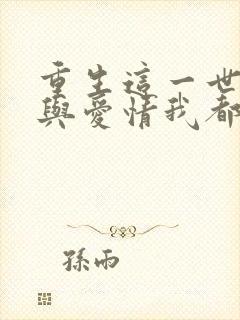 重生這一世
與愛情我都
孫雨